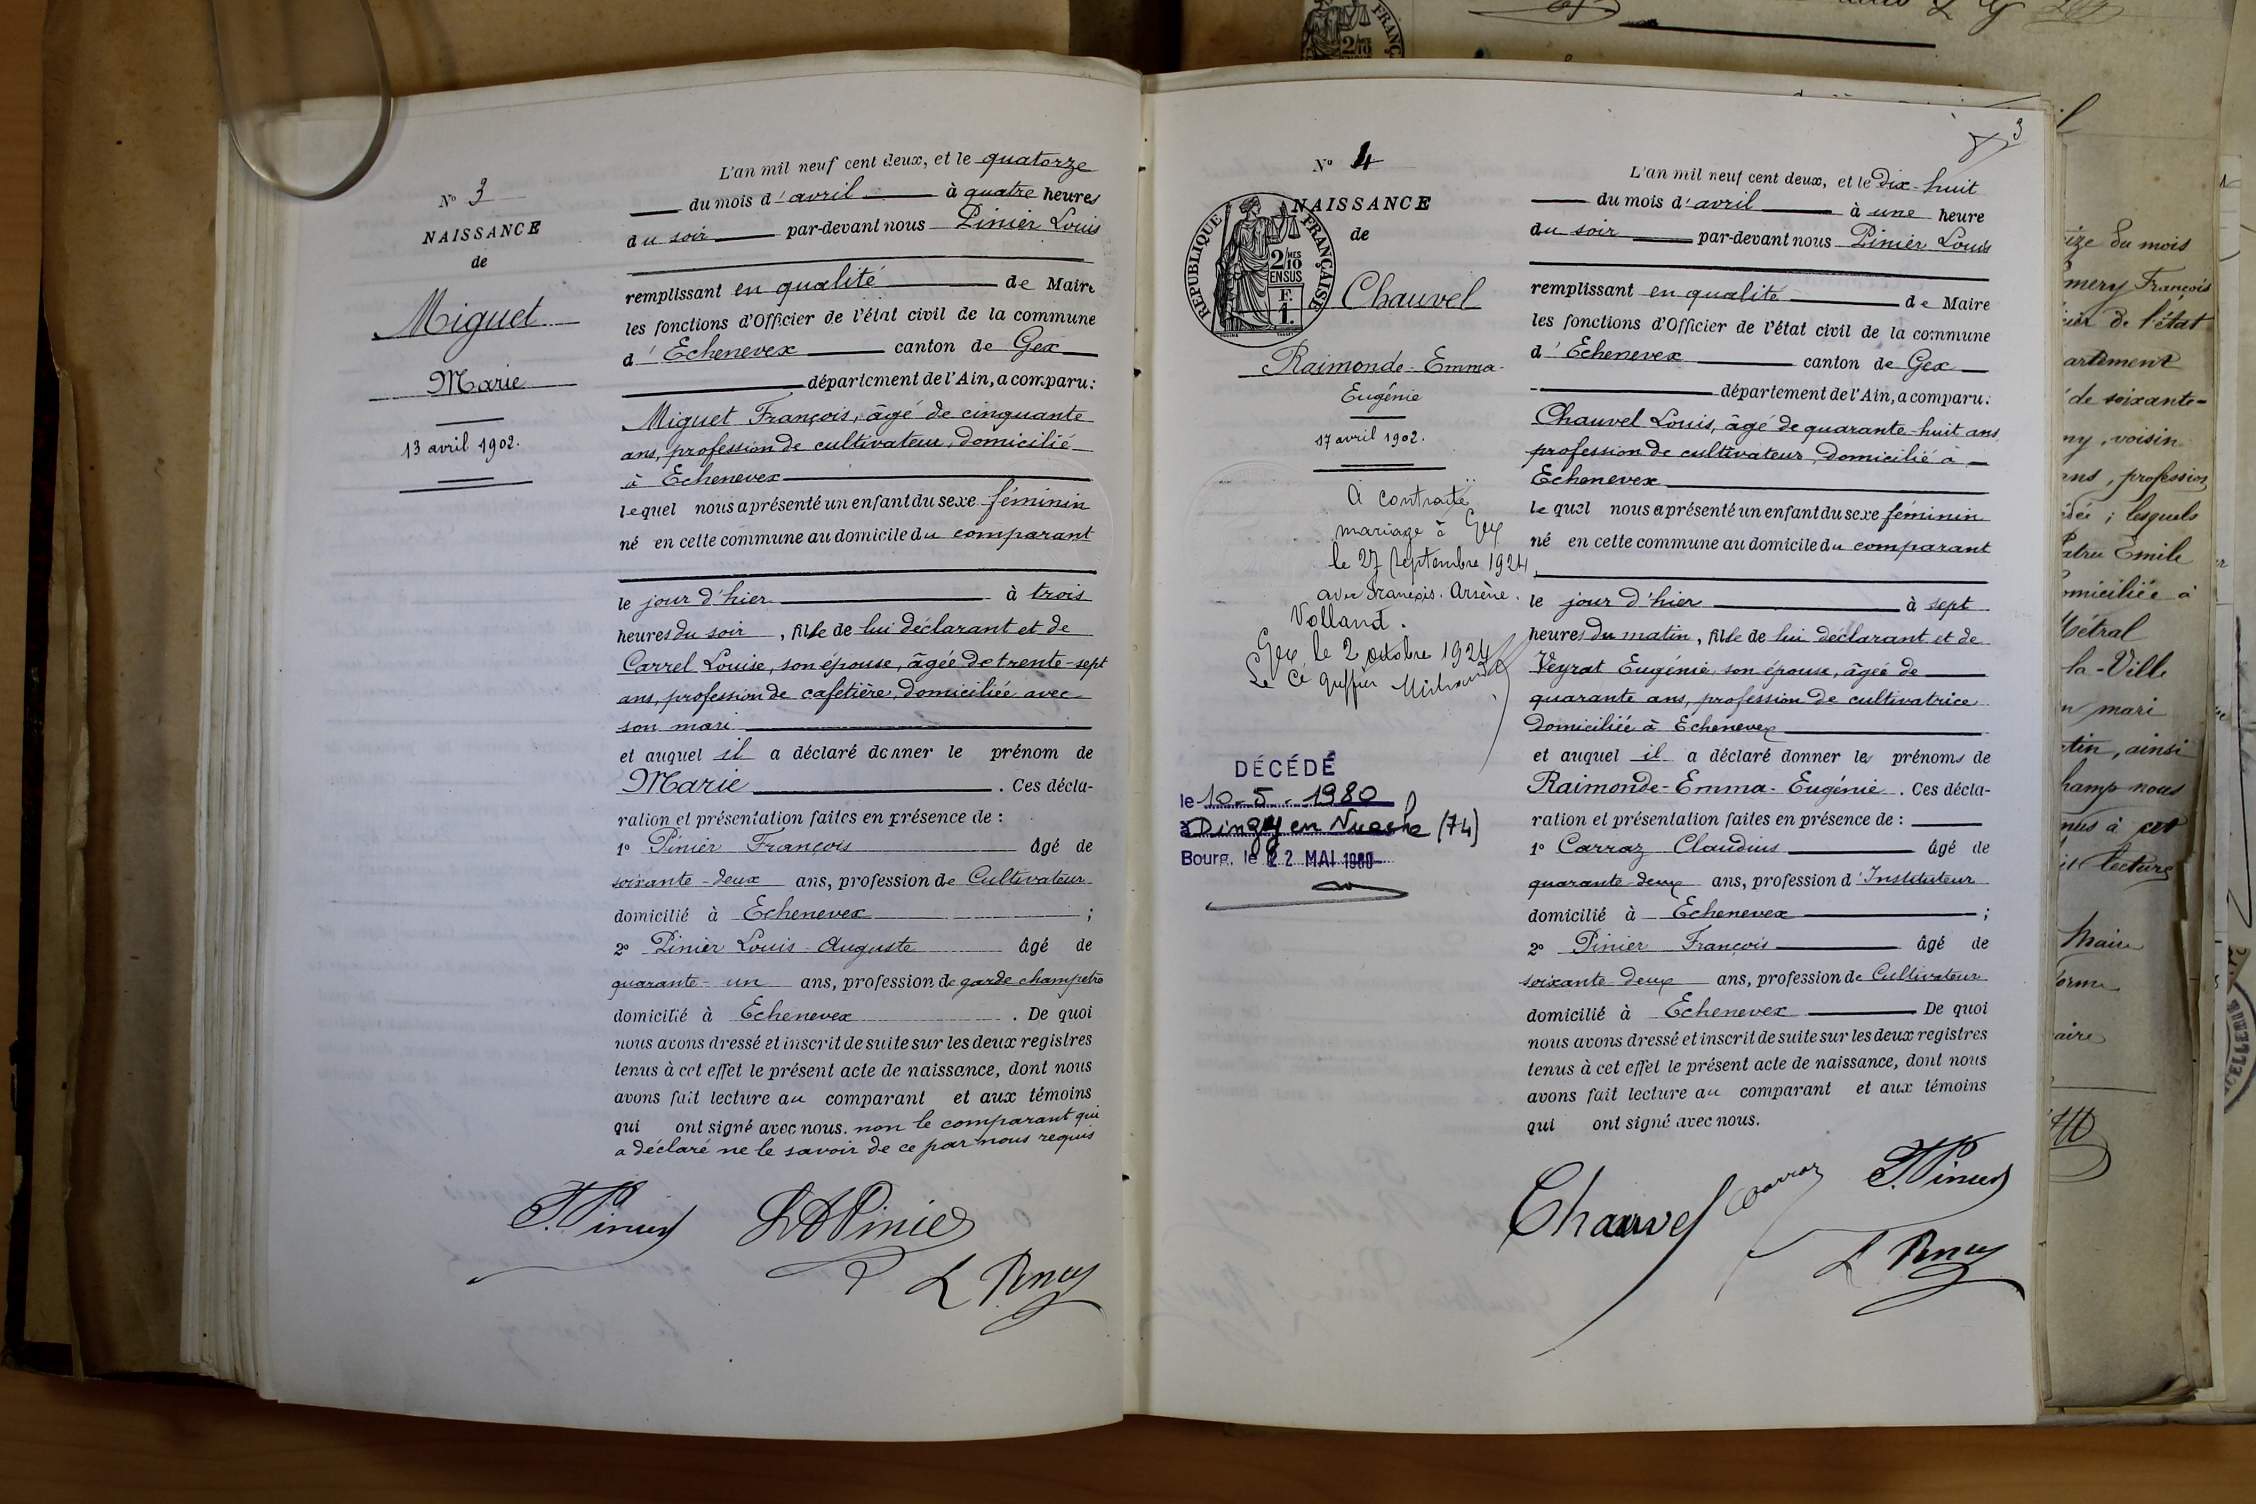 N° 3
NAISSANCE
de
Miguet
Marie
13 avril 1902.
L'an mil neuf cent deux, et le quatorze
du mois d'avril à quatre heures
du soir par-devant nous Pinier Louis
remplissant en qualité de Maire
les fonctions d'Officier de l'état civil de la commune
d'Echenevex canton de Gex
département de l'Ain, a comparu:
Miguet François, âgé de cinquante
ans, profession de cultivateur, domicilié
à Echenevex
lequel nous a présenté un enfant du sexe féminin
né en cette commune au domicile du comparant
le jour d'hier à trois
heures du soir, fille de lui déclarant et de
Carrel Louise, son épouse, âgée de trente-sept
ans, profession de cafetière, domiciliée avec
son mari
et auquel il a déclaré donner le prénom de
Marie. Ces décla-
ration et présentation faites en présence de :
1° Pinier François âgé de
soixante-deux ans, profession de Cultivateur
domicilié à Echenevex ;
2° Pinier Louis Auguste âgé de
quarante-un ans, profession de garde champetre
domicilié à Echenevex. De quoi
nous avons dressé et inscrit de suite sur les deux registres
tenus à cet effet le présent acte de naissance, dont nous
avons fait lecture au comparant et aux témoins
qui ont signé avec nous. non le comparant qui
a déclaré ne le savoir de ce par nous requis
F. Pinier LA Pinier
L Pinier
3
N° 4
NAISSANCE
de
RÉPUBLIQUE FRANÇAISE
2/10 MES
EN SUS
F.
1.
Chauvel
Raimonde-Emma-
Eugénie
17 avril 1902.
A contracté
mariage à Gex
le 27 Septembre 1924
avec François. Arsène.
Volland.
Gex, le 2 octobre 1924
Le greffier
DÉCÉDÉ
le 10-5-1980
à Dingy en Vuache (74)
Bourg, le 22 MAI 1980
L'an mil neuf cent deux, et le Dix-huit
du mois d'avril à une heure
du soir par-devant nous Pinier Louis
remplissant en qualité de Maire
les fonctions d'Officier de l'état civil de la commune
d'Echenevex canton de Gex
département de l'Ain, a comparu:
Chauvel Louis, âgé de quarante-huit ans,
profession de cultivateur, domicilié à
Echenevex
lequel nous a présenté un enfant du sexe féminin
né en cette commune au domicile du comparant
le jour d'hier à sept
heures du matin, fille de lui déclarant et de
Veyrat Eugénie, son épouse, âgée de
quarante ans, profession de cultivatrice
domiciliée à Echenevex
et auquel il a déclaré donner les prénoms de
Raimonde-Emma-Eugénie. Ces décla-
ration et présentation faites en présence de :
1° Carraz Claudius âgé de
quarante-deux ans, profession d'Instituteur
domicilié à Echenevex ;
2° Pinier François âgé de
soixante deux ans, profession de Cultivateur
domicilié à Echenevex De quoi
nous avons dressé et inscrit de suite sur les deux registres
tenus à cet effet le présent acte de naissance, dont nous
avons fait lecture au comparant et aux témoins
qui ont signé avec nous.
Chauvel Carraz F. Pinier
L Pinier
du mois
François
de l'état
de soixante-
, voisin
, profession
; lesquels
Emile
domiciliée à
Métral
la-Ville
mari
, ainsi
champ nous
à cet
lecture
Maire